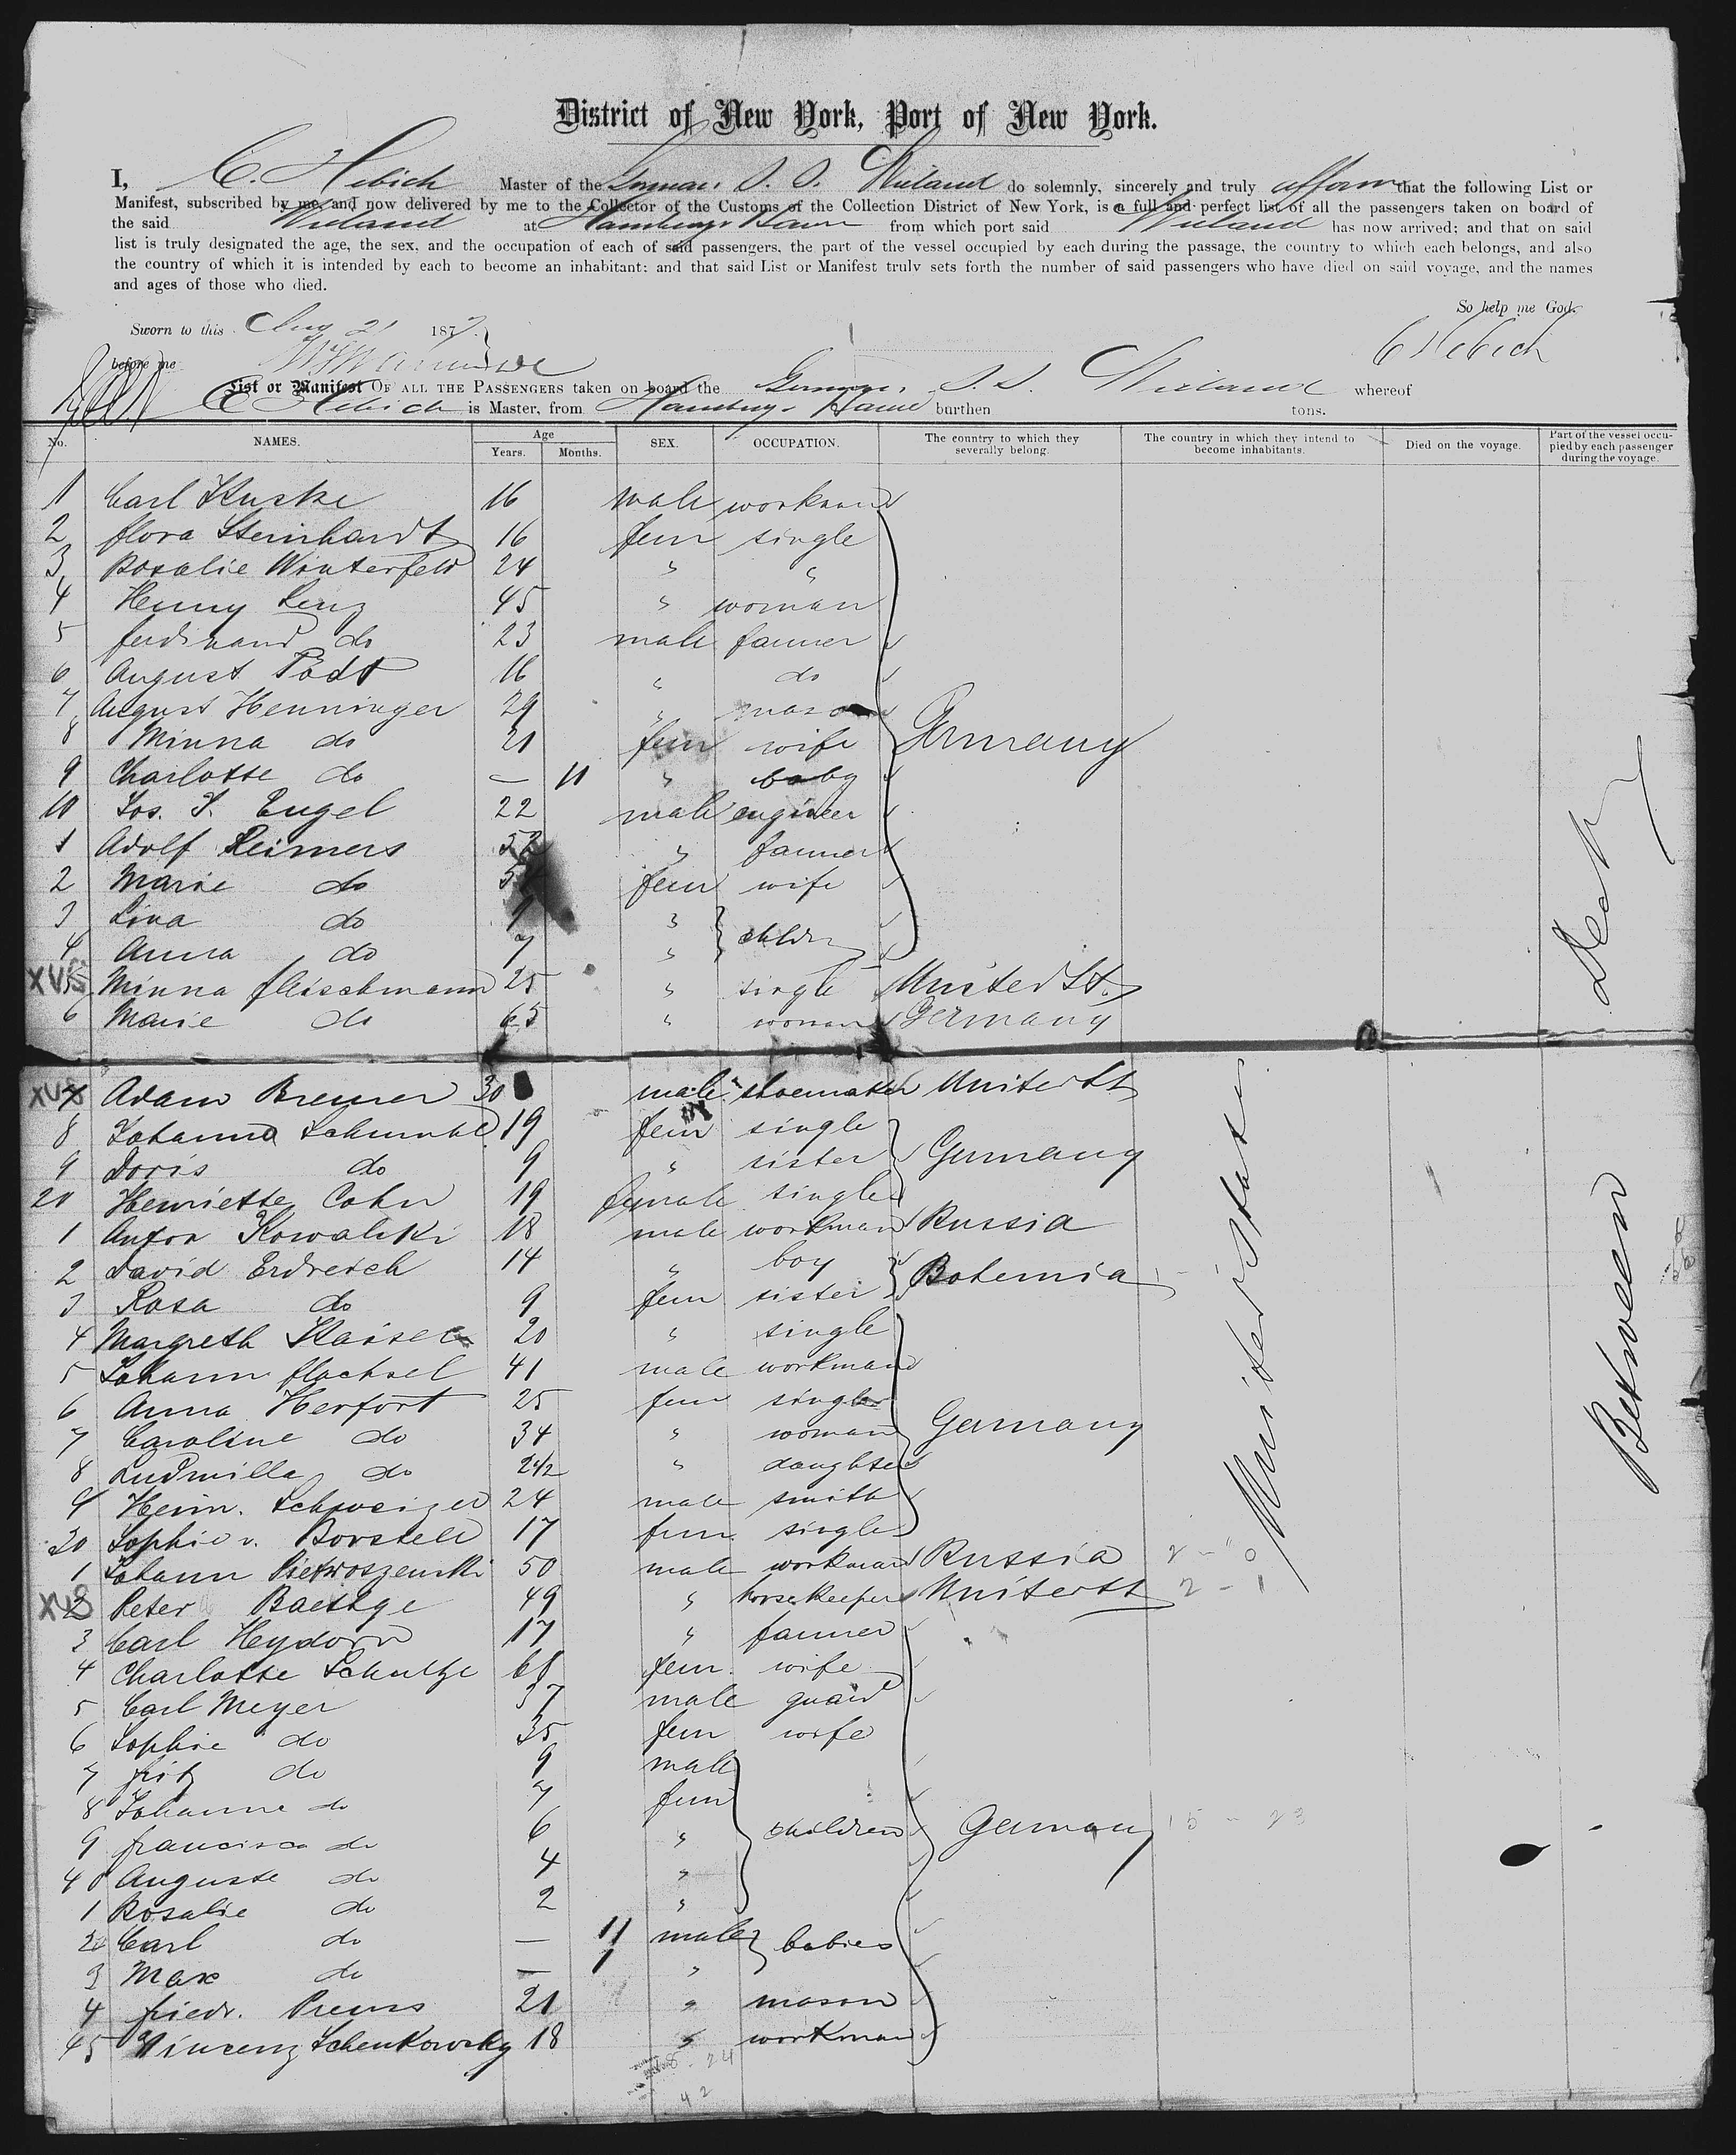 District of New York, Port of New York.
I, C. Hebich Master of the German S. S. Wieland do solemnly, sincerely and truly affirm that the following List or
Manifest, subscribed by me, and now delivered by me to the Collector of the Customs of the Collection District of New York, is a full and perfect list of all the passengers taken on board of
the said Wieland at Hamburg & Havre from which port said Wieland has now arrived; and that on said
list is truly designated the age, the sex, and the occupation of each of said passengers, the part of the vessel occupied by each during the passage, the country to which each belongs, and also
the country of which it is intended by each to become an inhabitant: and that said List or Manifest truly sets forth the number of said passengers who have died on said voyage, and the names
and ages of those who died.
So help me God.
Sworn to this Aug 21 187
before me
C Hebich
List or Manifest OF ALL THE PASSENGERS taken on board the German S. S. Wieland whereof
C Hebich is Master, from Hamburg & Havre burthen tons.
No. NAMES. Age Years. Months. SEX. OCCUPATION. The country to which they severally belong. The country in which they intend to become inhabitants. Died on the voyage. Part of the vessel occupied by each passenger during the voyage.
1 Carl Kuske 16 male workman
2 flora Steinhardt 16 fem single
3 Rosalie Winterfeld 24 " "
4 Henny Lenz 45 " woman
5 ferdinand do 23 male farmer
6 August Podt 16 " do
7 August Henninger 29 " mason
8 Minna do 21 fem wife Germany
9 Charlotte do — 11 " baby
10 Jos. J. Engel 22 male engineer
1 Adolf Reimers 52 " farmer
2 Marie do fem wife
3 Lina do "
4 Anna do 7 " childr
5 Minna fleischmann 25 " single United St.
6 Marie do 65 " woman Germany
Adam Bremer 30 male shoemaker United St
8 Johanna 19 fem single
9 Doris do 9 " sister Germany
20 Henriette Cohn 19 female single
1 Anton Kowalski 18 male workman Russia
2 David Erdreich 14 " boy Bohemia
3 Rosa do 9 fem sister
4 Margreth Kaiser 20 " single
5 Johann flachsel 41 male workman
6 Anna Herfort 25 fem single
7 Caroline do 34 " woman Germany
8 Ludmilla do 2 1/2 " daughter
9 Heinr. Schweizer 24 male smith
30 Sophie v. Borstell 17 fem single
1 Johann 50 male workman Russia
2 Peter Baethge 49 " horsekeeper United St
3 Carl Heydorn 17 " farmer
4 Charlotte Schultze 61 fem. wife
5 Carl Meyer 37 male guard
6 Sophie do 35 fem wife
7 fritz do 9 male
8 Johanne do 7 fem
9 francisca do 6 " children Germany
40 Auguste do 4 "
1 Rosalie do 2 "
2 Carl do — 11 male babies
3 Max do — 1 "
4 friedr. Preuss 21 " mason
45 Vincenz Schenkowsky 18 " workman
United States
Between Deck